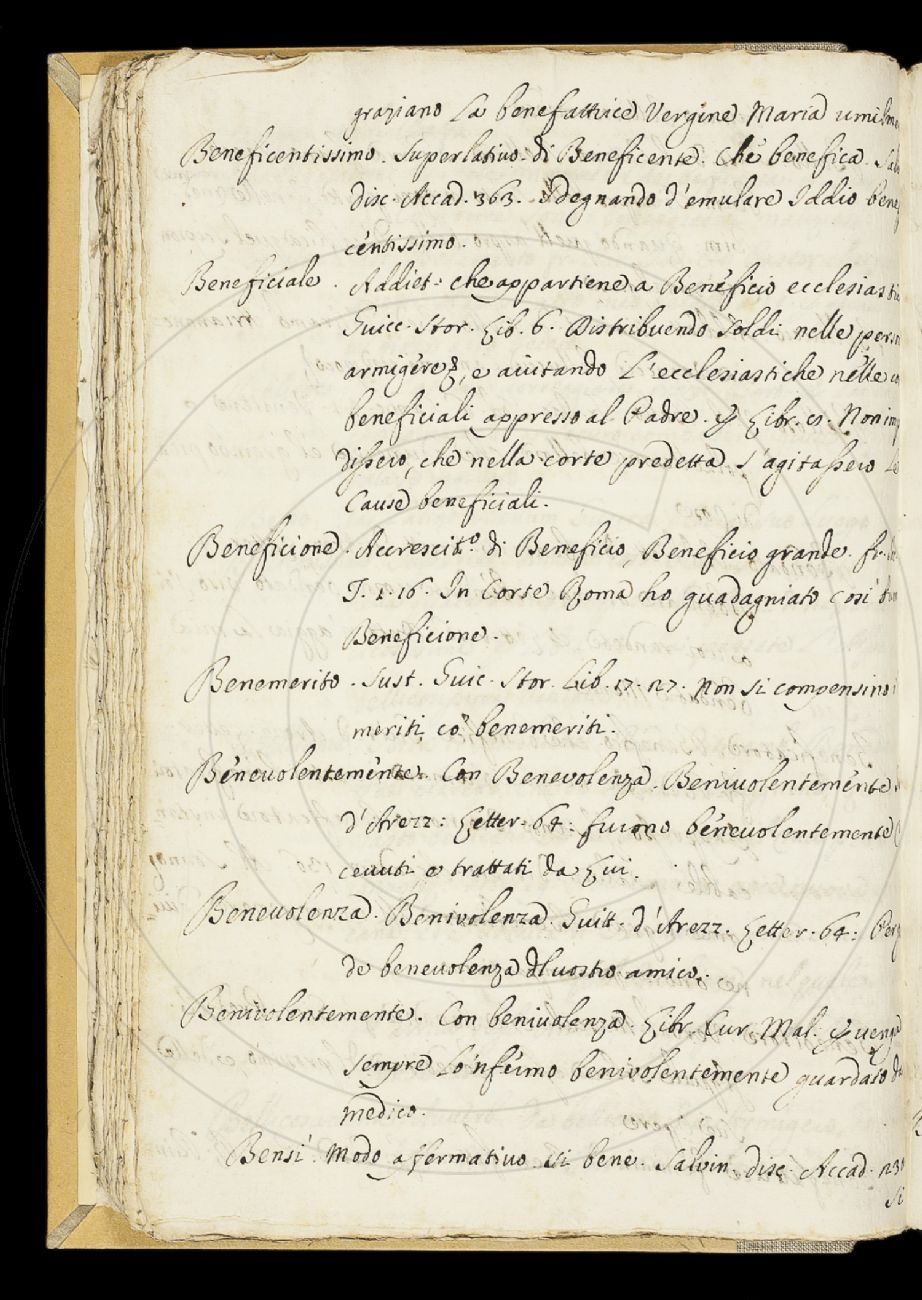 graziano La benefattrice Vergine Maria umilme
Beneficentissimo. Superlativo di Beneficente. Che benefica. Sal
disc. Accad. 363. Sdegnando d'emulare Iddio benef
centissimo.
Beneficiale. Addiet. che appartiene a Beneficio ecclesiasti
Guicc. Stor. Lib. 6. Distribuendo Soldi nelle perso
armigere, e aiutando L'ecclesiastiche nelle
beneficiali appresso al Padre. Libr. Non imp
dissero, che nella corte predetta s'agitassero Le
Cause beneficiali.
Beneficione. Accrescit.º di Beneficio, Beneficio grande. fr.
I. 1. 16. In Corte Roma ho guadagniato così bu
Beneficione.
Benemerito. Sust. Guic. Stor. Lib. 17. 27. Non si compensino i
meriti, co' benemeriti.
Benevolentemente. Con Benevolenza. Benivolentemente.
d'Arezz: Letter. 64: furono benevolentemente
cevuti e trattati da Lui.
Benevolenza. Benivolenza. Guitt. d'Arezz. Letter. 64: Per
de benevolenza del vostro amico.
Benivolentemente. Con benivolenza. Libr. Cur. Mal. venga
sempre Lo 'nfermo benivolentemente guardato da
medico.
Bensì. Modo affermativo. Sì bene. Salvin. disc. Accad.
Si